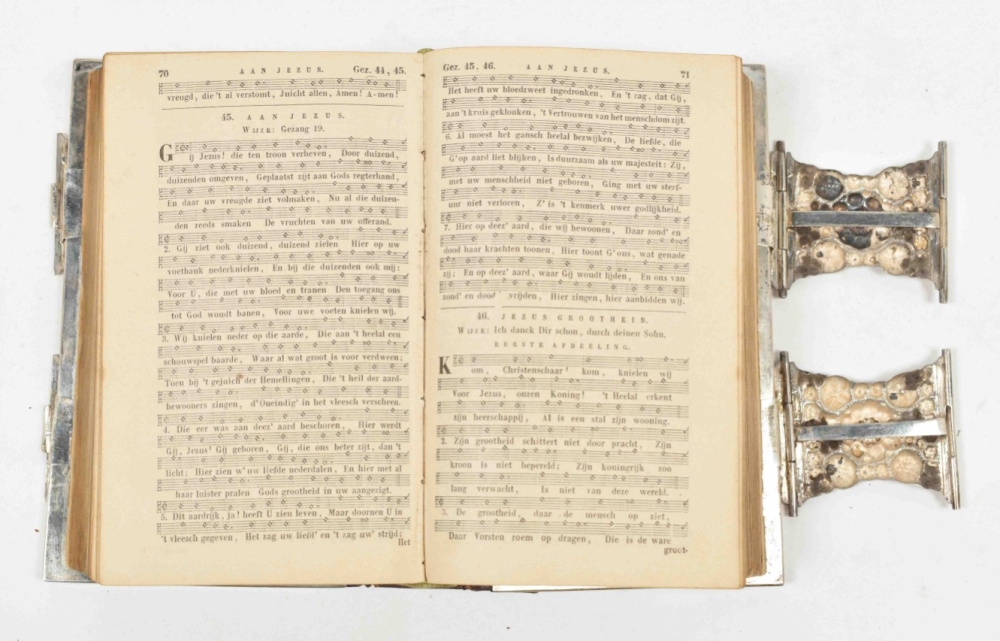 70 AAN JEZUS. Gez. 44, 45.
vreugd, die 't al verstomt, Juicht allen, Amen! A-men!
45. AAN JEZUS.
WIJZE: Gezang 19.
Gij Jezus! die ten troon verheven, Door duizend,
duizenden omgeven, Geplaatst zijt aan Gods regterhand,
En daar uw vreugde ziet volmaken, Nu al die duizen-
den reeds smaken De vruchten van uw offerand.
2. Gij ziet ook duizend, duizend zielen Hier op uw
voetbank nederknielen, En bij die duizenden ook mij:
Voor U, die met uw bloed en tranen Den toegang ons
tot God woudt banen, Voor uwe voeten knielen wij.
3. Wij knielen neder op die aarde, Die aan 't heelal een
schouwspel baarde, Waar al wat groot is voor verdween;
Toen bij 't gejuich der Hemellingen, Die 't heil der aard-
bewooners zingen, d'Oneindig' in het vleesch verscheen.
4. Die eer was aan deez' aard beschoren, Hier werdt
Gij, Jezus! Gij geboren, Gij, die ons beter zijt, dan 't
licht: Hier zien w' uw liefde nederdalen, En hier met al
haar luister pralen Gods grootheid in uw aangezigt.
5. Dit aardrijk, ja! heeft U zien leven, Maar doornen U in
't vleesch gegeven, Het zag uw liefd' en 't zag uw' strijd;
Het
Gez. 45, 46. AAN JEZUS. 71
Het heeft uw bloedzweet ingedronken, En 't zag, dat Gij,
aan 't kruis geklonken, 't Vertrouwen van het menschdom zijt.
6. Al moest het gansch heelal bezwijken, De liefde, die
G'op aard liet blijken, Is duurzaam als uw majesteit: Zij,
met uw menschheid niet geboren, Ging met uw sterf-
uur niet verloren, Z' is 't kenmerk uwer godlijkheid.
7. Hier op deez' aard, die wij bewoonen, Daar zond' en
dood haar krachten toonen, Hier toont G'ons, wat genade
zij; En op deez' aard, waar Gij woudt lijden, En ons van
zond' en dood vrijden, Hier zingen, hier aanbidden wij.
46. JEZUS GROOTHEID.
WIJZE: Ich danck Dir schon, durch deinen Sohn.
EERSTE AFDEELING.
Kom, Christenschaar! kom, knielen wij
Voor Jezus, onzen Koning! 't Heelal erkent
zijn heerschappij, Al is een stal zijn wooning.
2. Zijn grootheid schittert niet door pracht, Zijn
kroon is niet bepereld; Zijn koningrijk zoo
lang verwacht, Is niet van deze wereld.
3. De grootheid, daar de mensch op ziet,
Daar Vorsten roem op dragen, Die is de ware
groot-